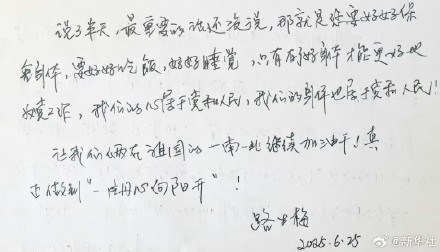 说了半天，最重要的话还没说，那就是您要好好保
重身体，要好好吃饭，好好睡觉，只有有好身体才能更好地
工作，我们的心属于党和人民，我们的身体也属于党和人民！
让我们俩在祖国的一南一北继续加油干！真
正做到“一片丹心向阳开”！
路生梅
2025.6.25
@新华社